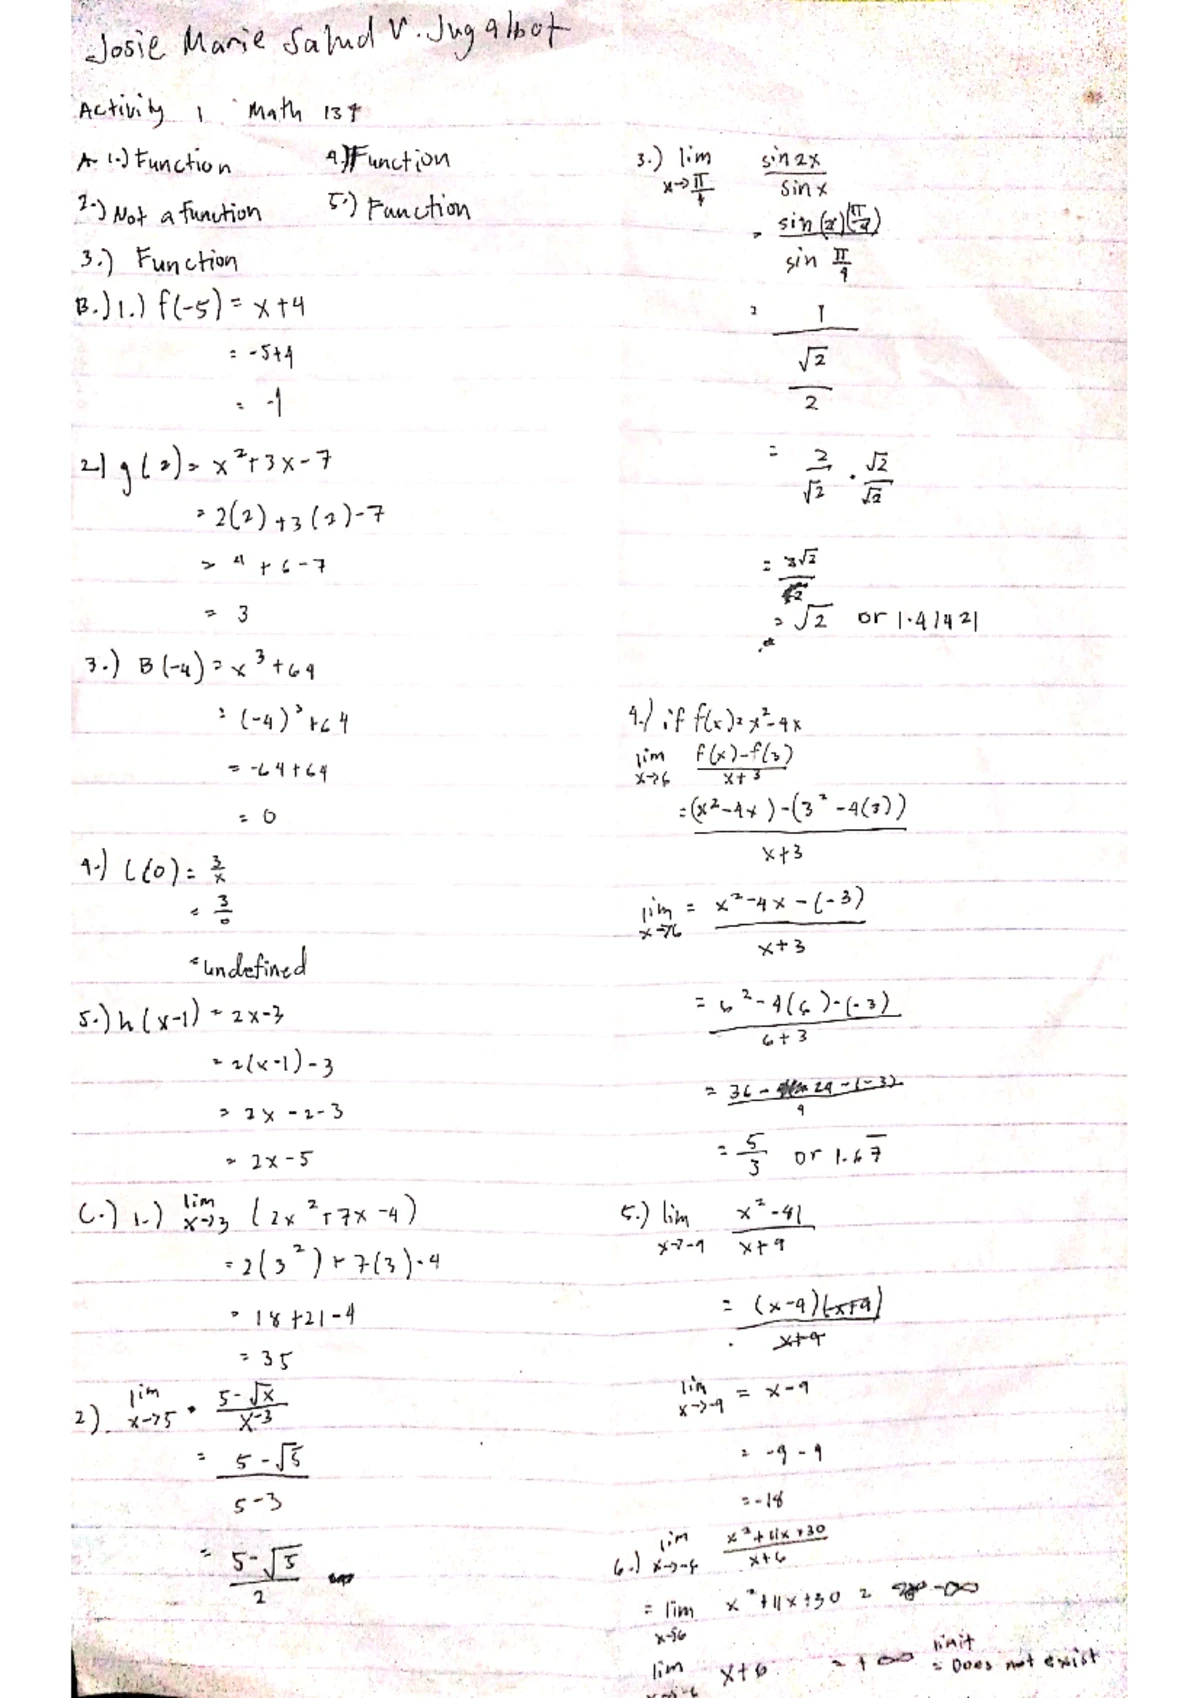 Josie Marie Salud V. Jugalbot
Activity 1 Math 134
A. 1.) Function
2.) Not a function
3.) Function
4.) Function
5.) Function
B.) 1.) f(-5) = x+4
= -5+4
= -1
2.) g(2) = x²+3x-7
= 2(2)+3(2)-7
= 4+6-7
= 3
3.) B(-4) = x³+64
= (-4)³+64
= -64+64
= 0
4.) L(0) = 3/x
= 3/0
= undefined
5.) h(x-1) = 2x-3
= 2(x-1)-3
= 2x-2-3
= 2x-5
C.) 1.) lim x→3 (2x²+7x-4)
= 2(3²)+7(3)-4
= 18+21-4
= 35
2.) lim x→5 5-√x / x-3
= 5-√5 / 5-3
= 5-√5 / 2
3.) lim x→π/4 sin2x / sinx
= sin(2)(π/4) / sin π/4
= 1 / √2/2
= 2/√2 · √2/√2
= 2√2 / 2
= √2 or 1.41421
4.) if f(x)=x²-4x
lim x→6 f(x)-f(3) / x+3
= (x²-4x)-(3²-4(3)) / x+3
lim x→6 = x²-4x-(-3) / x+3
= 6²-4(6)-(-3) / 6+3
= 36-24-(-3) / 9
= 5/3 or 1.67
5.) lim x→-9 x²-81 / x+9
= (x-9)(x+9) / x+9
lim x→-9 = x-9
= -9-9
= -18
6.) lim x→-6 x²+11x+30 / x+6
= lim x→6 x²+11x+30 = -∞
lim x→-6 x+6 = +∞ limit = Does not exist